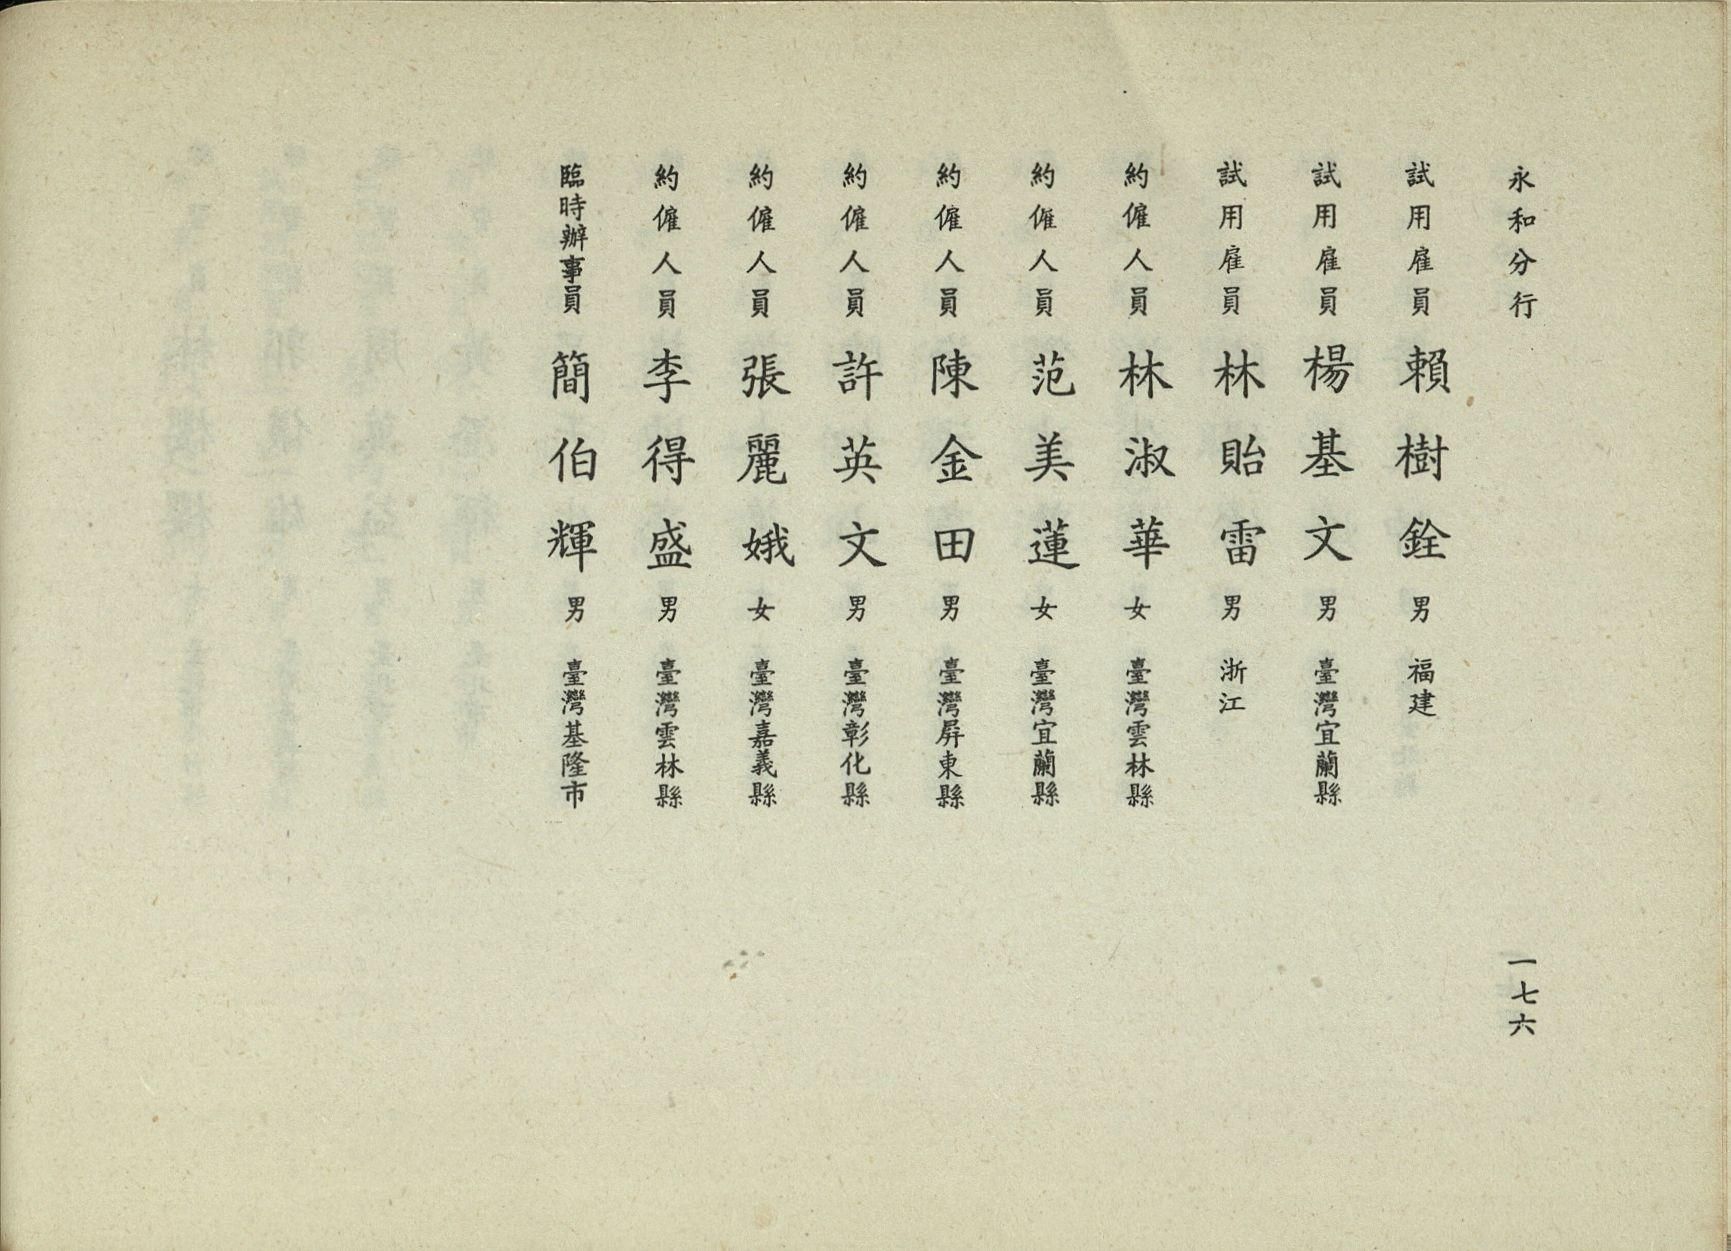 永和分行 一七六
試用雇員 賴樹銓 男 福建
試用雇員 楊基文 男 臺灣宜蘭縣
試用雇員 林貽雷 男 浙江
約僱人員 林淑華 女 臺灣雲林縣
約僱人員 范美蓮 女 臺灣宜蘭縣
約僱人員 陳金田 男 臺灣屏東縣
約僱人員 許英文 男 臺灣彰化縣
約僱人員 張麗娥 女 臺灣嘉義縣
約僱人員 李得盛 男 臺灣雲林縣
臨時辦事員 簡伯輝 男 臺灣基隆市